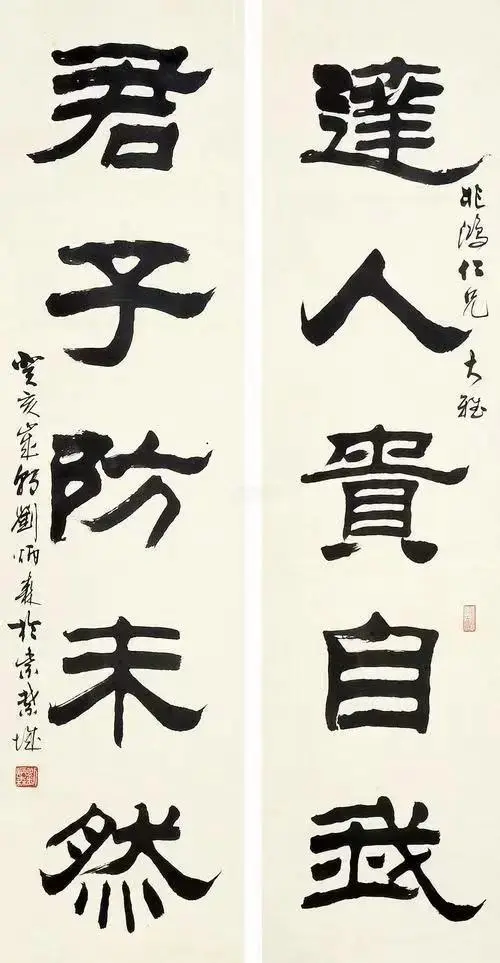 達人貴自我
鴻仁兄 大雅
君子防未然
癸亥歲朝劉炳森於紫禁城